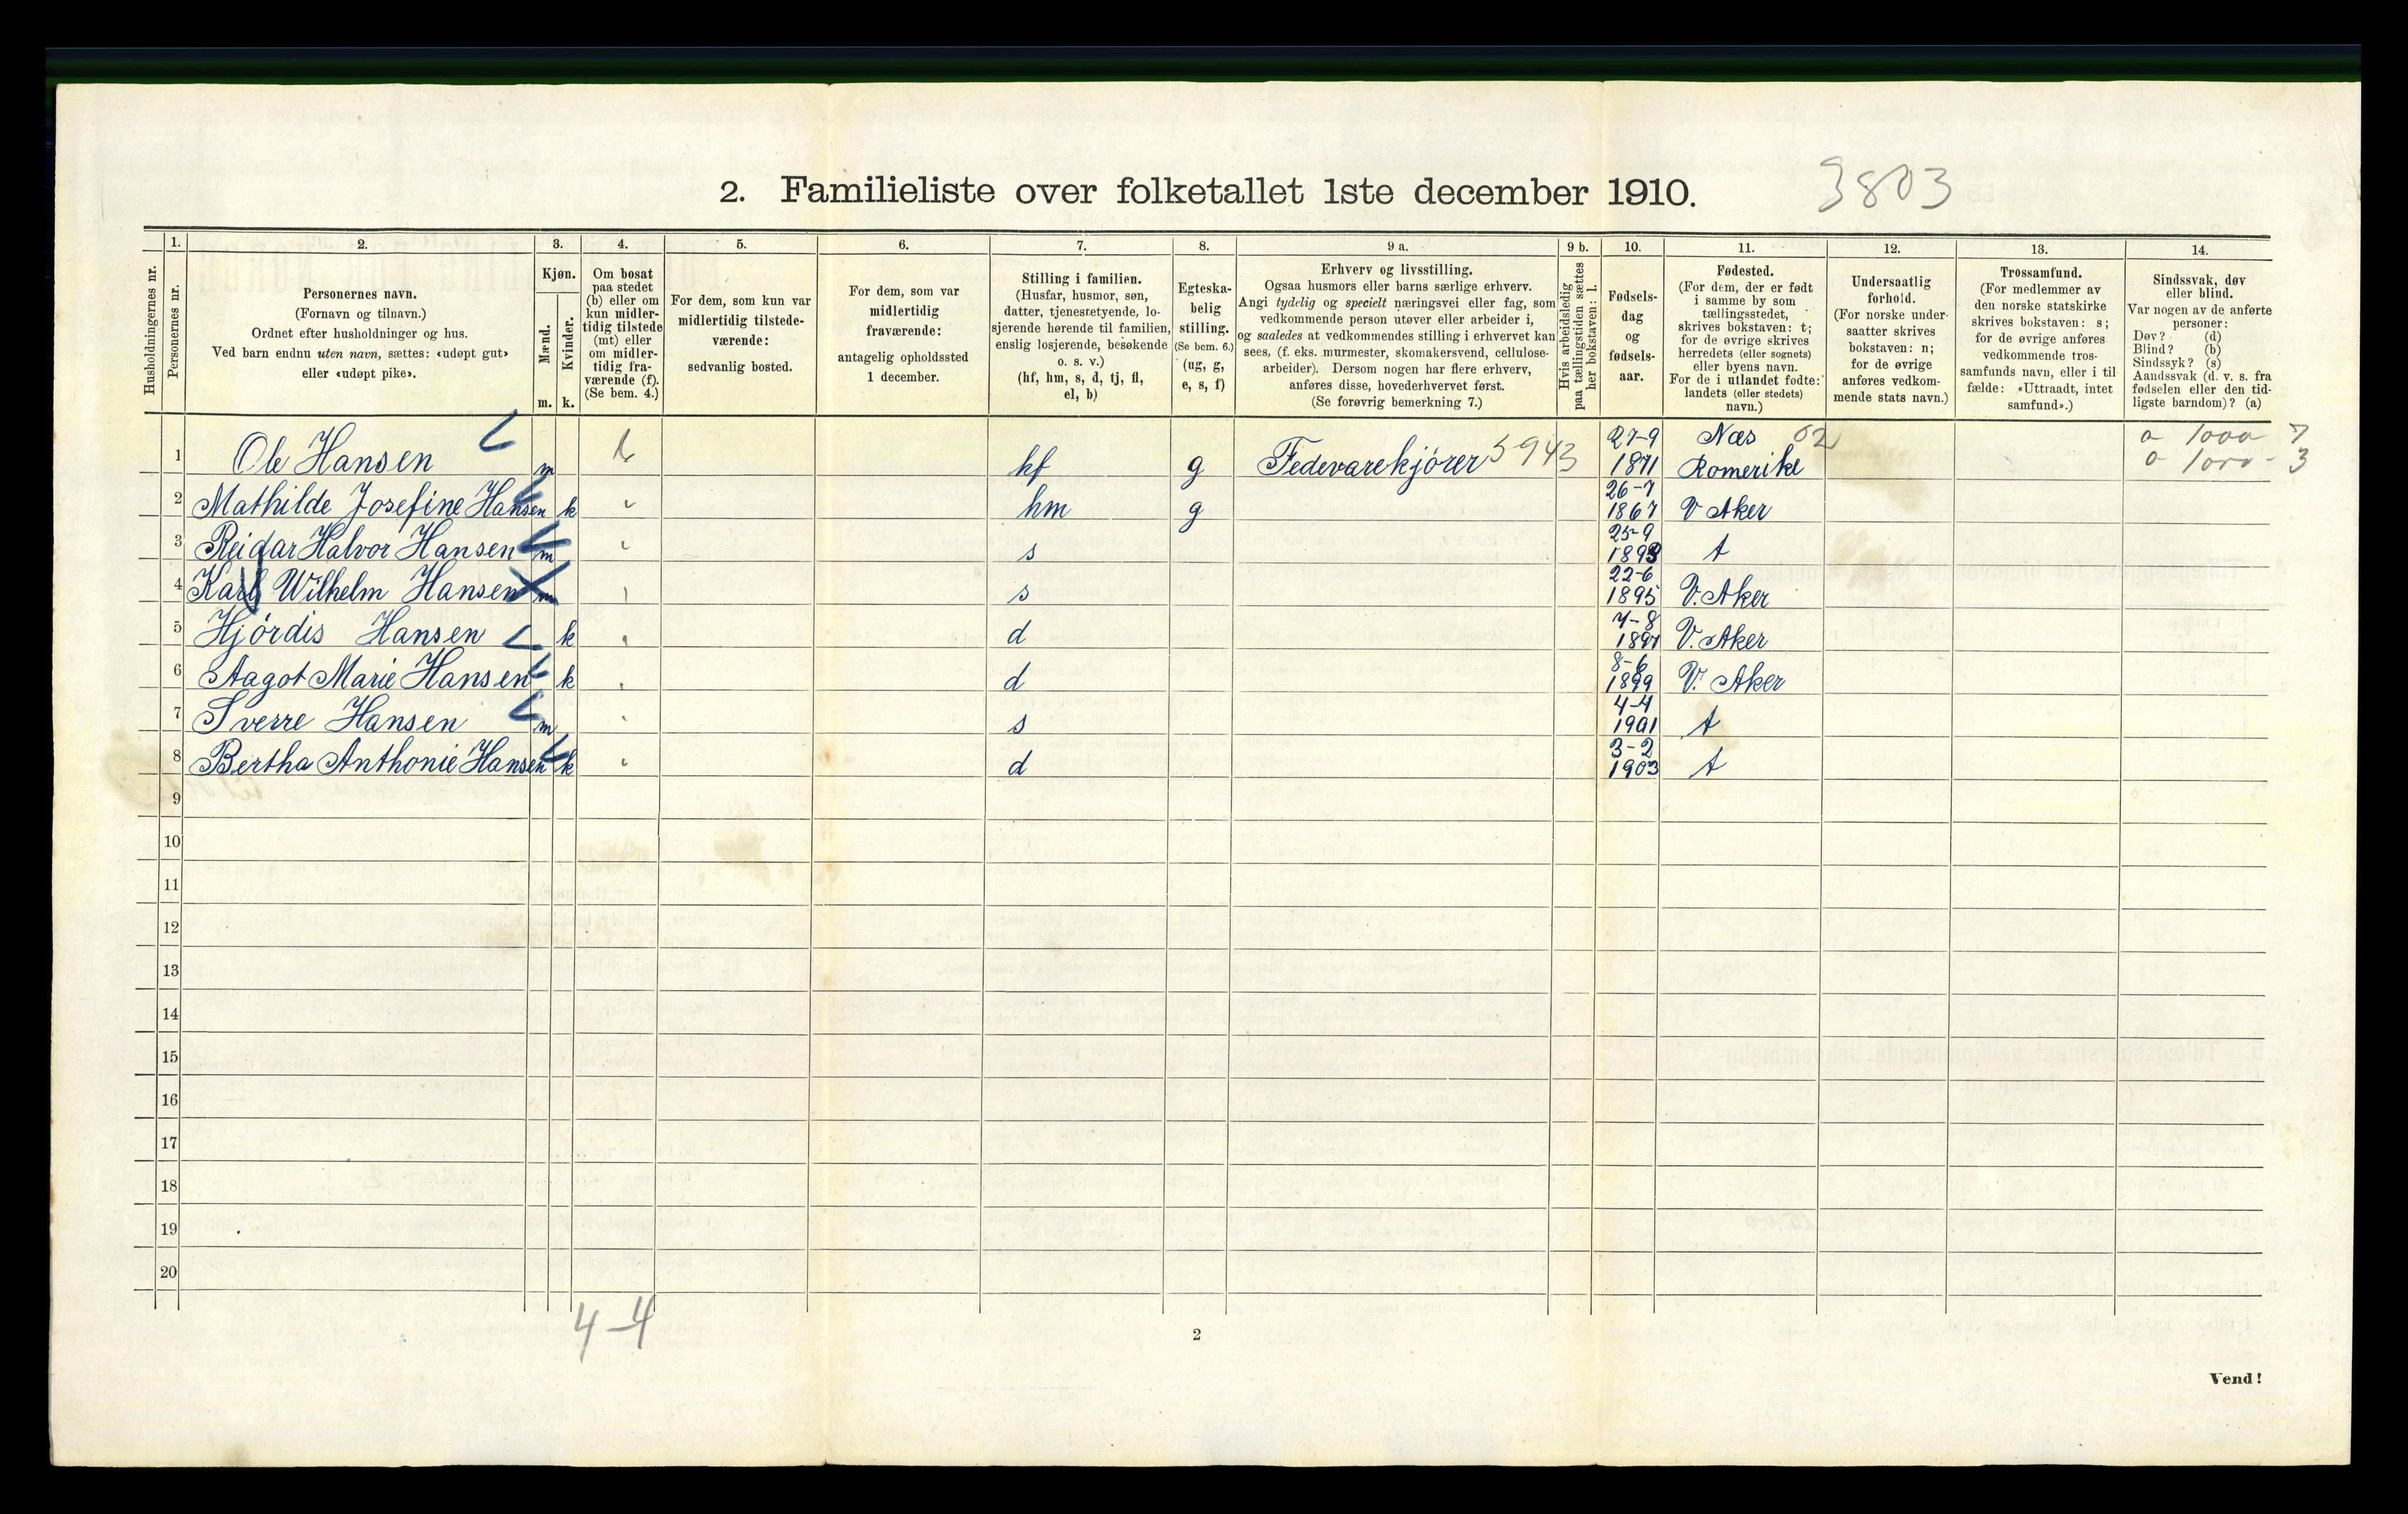 2. Familieliste over folketallet 1ste december 1910.
3803
Husholdningernes nr.
1.
Personernes nr.
2.
Personernes navn.
(Fornavn og tilnavn.)
Ordnet efter husholdninger og hus.
Ved barn endnu uten navn, sættes: «udøpt gut»
eller «udøpt pike».
3.
Kjøn.
Mænd.
Kvinder.
m. k.
4.
Om bosat
paa stedet
(b) eller om
kun midler-
tidig tilstede
(mt) eller
om midler-
tidig fra-
værende (f).
(Se bem. 4.)
5.
For dem, som kun var
midlertidig tilstede-
værende:
sedvanlig bosted.
6.
For dem, som var
midlertidig
fraværende:
antagelig opholdssted
1 december.
7.
Stilling i familien.
(Husfar, husmor, søn,
datter, tjenestetyende, lo-
sjerende hørende til familien,
enslig losjerende, besøkende
o. s. v.)
(hf, hm, s, d, tj, fl,
el, b)
8.
Egteska-
belig
stilling.
(Se bem. 6.)
(ug, g,
e, s, f)
9 a.
Erhverv og livsstilling.
Ogsaa husmors eller barns særlige erhverv.
Angi tydelig og specielt næringsvei eller fag, som
vedkommende person utøver eller arbeider i,
og saaledes at vedkommendes stilling i erhvervet kan
sees, (f. eks. murmester, skomakersvend, cellulose-
arbeider). Dersom nogen har flere erhverv,
anføres disse, hovederhvervet først.
(Se forøvrig bemerkning 7.)
9 b.
Hvis arbeidsledig
paa tællingstiden sættes
her bokstaven: l.
10.
Fødsels-
dag
og
fødsels-
aar.
11.
Fødested.
(For dem, der er født
i samme by som
tællingsstedet,
skrives bokstaven: t;
for de øvrige skrives
herredets (eller sognets)
eller byens navn.
For de i utlandet fødte:
landets (eller stedets)
navn.)
12.
Undersaatlig
forhold.
(For norske under-
saatter skrives
bokstaven: n;
for de øvrige
anføres vedkom-
mende stats navn.)
13.
Trossamfund.
(For medlemmer av
den norske statskirke
skrives bokstaven: s;
for de øvrige anføres
vedkommende tros-
samfunds navn, eller i til
fælde: «Uttraadt, intet
samfund».)
14.
Sindssvak, døv
eller blind.
Var nogen av de anførte
personer:
Døv? (d)
Blind? (b)
Sindssyk? (s)
Aandssvak (d. v. s. fra
fødselen eller den tid-
ligste barndom)? (a)
1 Ole Hansen m b hf g Fedevarekjører 5943 27-9 1871 Næs 02 Romerike
2 Mathilde Josefine Hansen k hm g 26-7 1867 V Aker
3 Reidar Halvor Hansen m s 25-9 1893 t
4 Karl Wilhelm Hansen m s 22-6 1895 V. Aker
5 Hjørdis Hansen k d 7-8 1897 V. Aker
6 Aagot Marie Hansen k d 8-6 1899 V. Aker
7 Sverre Hansen m s 4-4 1901 t
8 Bertha Anthonie Hansen k d 3-2 1903 t
9
10
11
12
13
14
15
16
17
18
19
20
4-4
2
Vend!